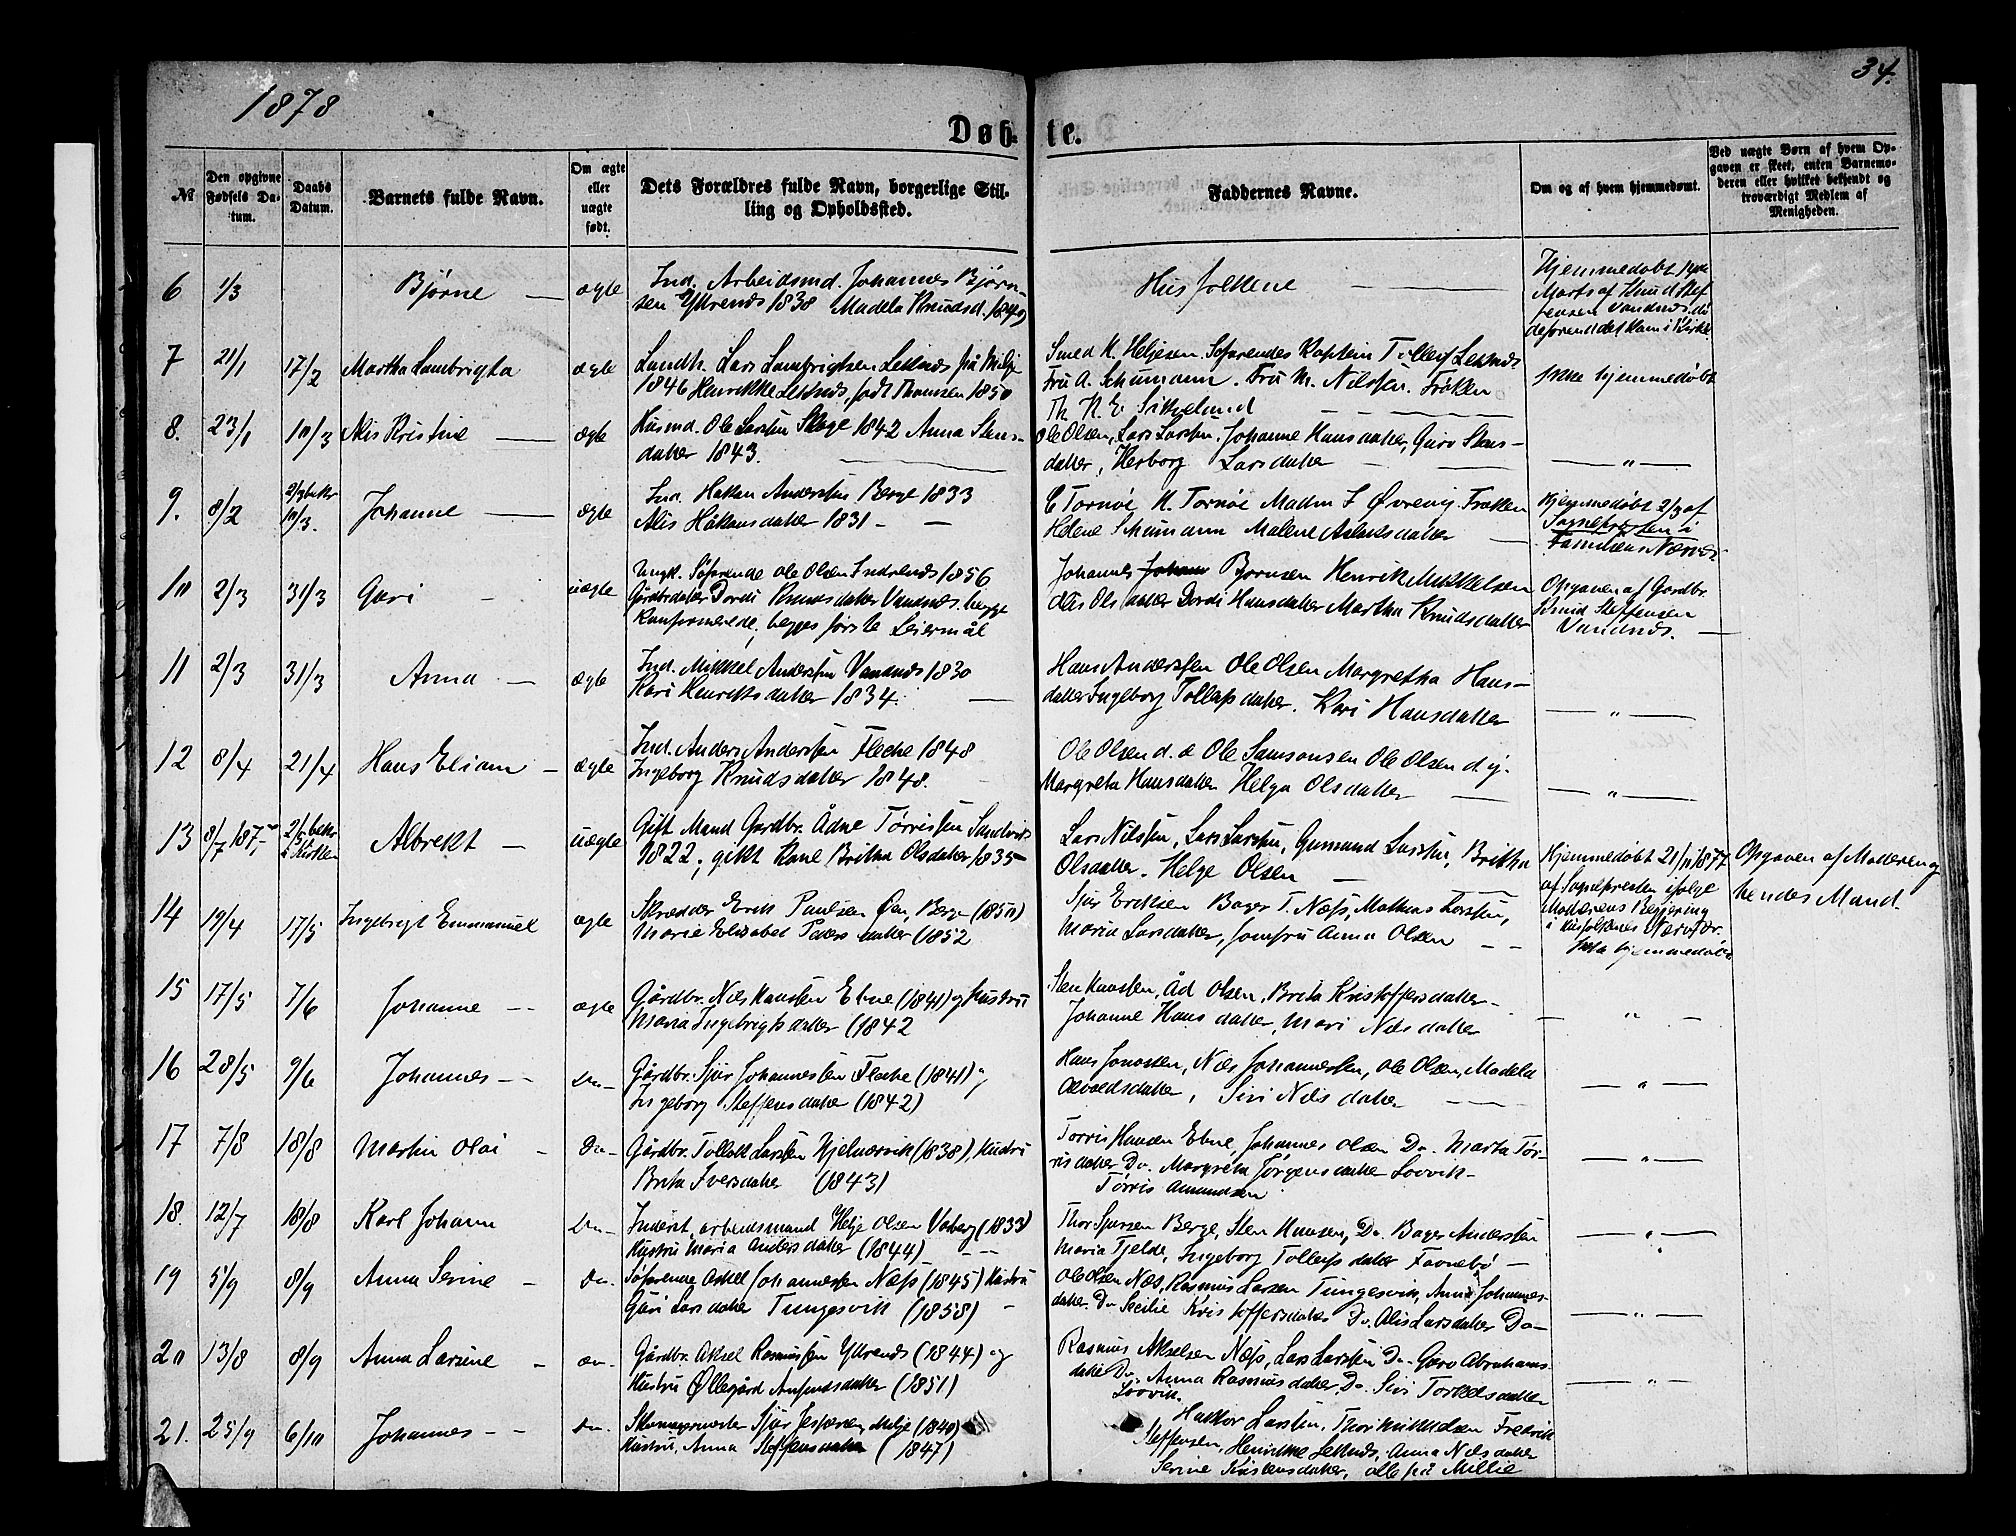 1878
34.
Døb-
te.
№
Den opgivne Fødsels Da-
tum.
Daabs Datum.
Barnets fulde Navn.
Om ægte eller uægte født.
Dets Forældres fulde Navn, borgerlige Stil-
ling og Opholdssted.
Faddernes Navne.
Om og af hvem hjemmedøbt.
Ved uægte Børn af hvem Op-
gaven er skeet, enten Barnemo-
deren eller hvilket bekjendt og
troværdigt Medlem af
Menigheden.
6 1/3 Bjørne ægte Ind. Arbeidsmd. Johannes Bjørn-
sen Ytrenes 1838 Madela Knudsd. 1849
Husfolkene
Hjemmedøbt
Marts af Knud Stef-
fensen Vandnes
7 21/1 17/2 Martha Lambrigta ægte Landh. Lars Lambrigtsen Leknes på Milje
1846 Henrikke Leknes, født Thomsen 1850
Smed K. Heljesen. Søfarendes Kaptein Tollef Leknes
Fru A. Schumann. Fru M. Nilssen. Frøken
Th. K. E. Sikveland
Ikke hjemmedøbt
8. 23/1 10/3 Alis Kristine ægte Husmd. Ole Larsen Skoge 1842 Anna Stens-
datter 1843.
Ole Olsen, Lars Larsen. Johanne Hansdatter, Guro Stens-
datter, Herborg Larsdatter
— " —
9. 8/2 10/3. Johanne ægte Ind. Hakon Andersen Berge 1833
Alis Håkonsdatter 1831
E Tornøe K. Tornøe Madm I Øvrevig Frøken
Helene Schumann Malene Askelsdatter
Hjemmedøbt 2/3 af
Sognepresten i
Familiens Nærvær
10 2/3 31/3 Gari uægte Ungk. Søfarende Ole Olsen Indrenes 1856
Gårdbrdatter Dordi Knudsdatter Vandnes, begge
Konfirmerede, begges første Leiermål
Johannes Bjørnsen Henrik Mikkelsen
Alis Olsdatter Dordi Hansdatter Martha Knudsdatter
Opgaven af Gardbr.
Knud Steffensen
Vandnes.
11 2/3 31/3 Anna ægte Ind. Mikkel Andersen Vandnes 1830
Kari Henriksdatter 1834.
Hans Andersen Ole Olsen Margretha Hans-
datter Ingeborg Tollefsdatter. Kari Hansdatter
— " —
12 8/4 21/4 Hans Eliam ægte Ind. Anders Andersen Fleche 1848
Ingeborg Knudsdatter 1848.
Ole Olsen d. æ Ole Samsonsen Ole Olsen d. y.
Margreta Hansdatter Helga Olsdatter
— " —
13 8/7 187 Albrekt uægte Gift Mand Gardbr. Ådne Tørrissen Sandvik
1822, gift Kone Britha Olsdatter 1835
Lars Nilssen, Lars Larsen, Gunmund Larsen, Britha
Olsdatter. Helge Olsen
Hjemmedøbt 21/11 1877
af Sognepresten ifølge
Moderens Begjæring
i Husfolkenes Nærvær.
Opgaven af Moderen og
hendes Mand.
14 19/4 17/5 Ingebrigt Emmanuel ægte Skrædder Erik Paulsen Øen, Berge (1850)
Marie Elisabet Pedersdatter (1852
Sjur Eriksen Bager T. Næss, Mathias Larsen,
Maria Larsdatter, Jomfru Anna Olsen
Ikke hjemmedøbt
15 17/5 7/6 Johanne ægte Gårdbr. Nils Hansen Ebne (1841) og Hustru
Maria Ingebrigtsdatter (1842
Sten Hansen, Åd Olsen, Brita Kristoffersdatter
Johanne Hansdatter, Mari Nilsdatter
— " —
16 28/5 9/6 Johannes Do Gårdbr. Sjur Johannessen Fleche (1841) og
Ingeborg Steffensdatter (1842)
Hans Jonassen, Nils Johannessen, Ole Olsen, Madela
Siri Nilsdatter
— " —
17 7/8 18/8 Martin Olai Do Gårdbr. Tollak Larsen Hjelmervik (1838), Hustru
Brita Iversdatter (1843)
Tørris Hansen Ebne, Johannes Olsen Do. Marta Tør-
risdatter Do. Margreta Jørgensdatter Lovvik
Tørris Amundsen
— " —
18. 12/7 18/8 Karl Johann Do Inderst, arbeidsmand Helje Olsen Vaberg (1833)
Hustru Maria Andersdatter (1844)
Thor Sjursen Berge, Sten Hansen, Do. Bager Andersen
Maria Tjelde, Ingeborg Tollefsdatter Favnebø
— " —
19 5/9 8/9 Anna Serine Do. Søfarende Askel Johannessen Næss (1845) Hustru
Guri Larsdatter Tungesvik (1858)
Ole Olsen Næs, Rasmus Larsen Tungesvik, Anna Johannes-
datter Do Secilie Kristoffersdatter Do. Alis Larsdatter Do
— " —
20 13/8 8/9 Anna Larsine Do. Gårdbr. Aksel Rasmussen Ytrenes (1844) og
Hustru Øllegård Amundsdatter (1851)
Rasmus Akselsen Næss, Lars Larsen Do. Guro Abrahams-
datter Do. Anna Rasmusdatter Do. Siri Torkelsdatter
Lovvik.
— " —
21. 25/9 6/10 Johannes Do. Skomagermester Sjur Jespersen, Milje (1840)
Hustru, Anna Steffensdatter (1847)
Halvor Larsen, Thor Mikkelsen Fredrik
Steffensen, Henrikke Leknes, Anna Nilsdatter
Serine Kristensdatter, alle på Millie